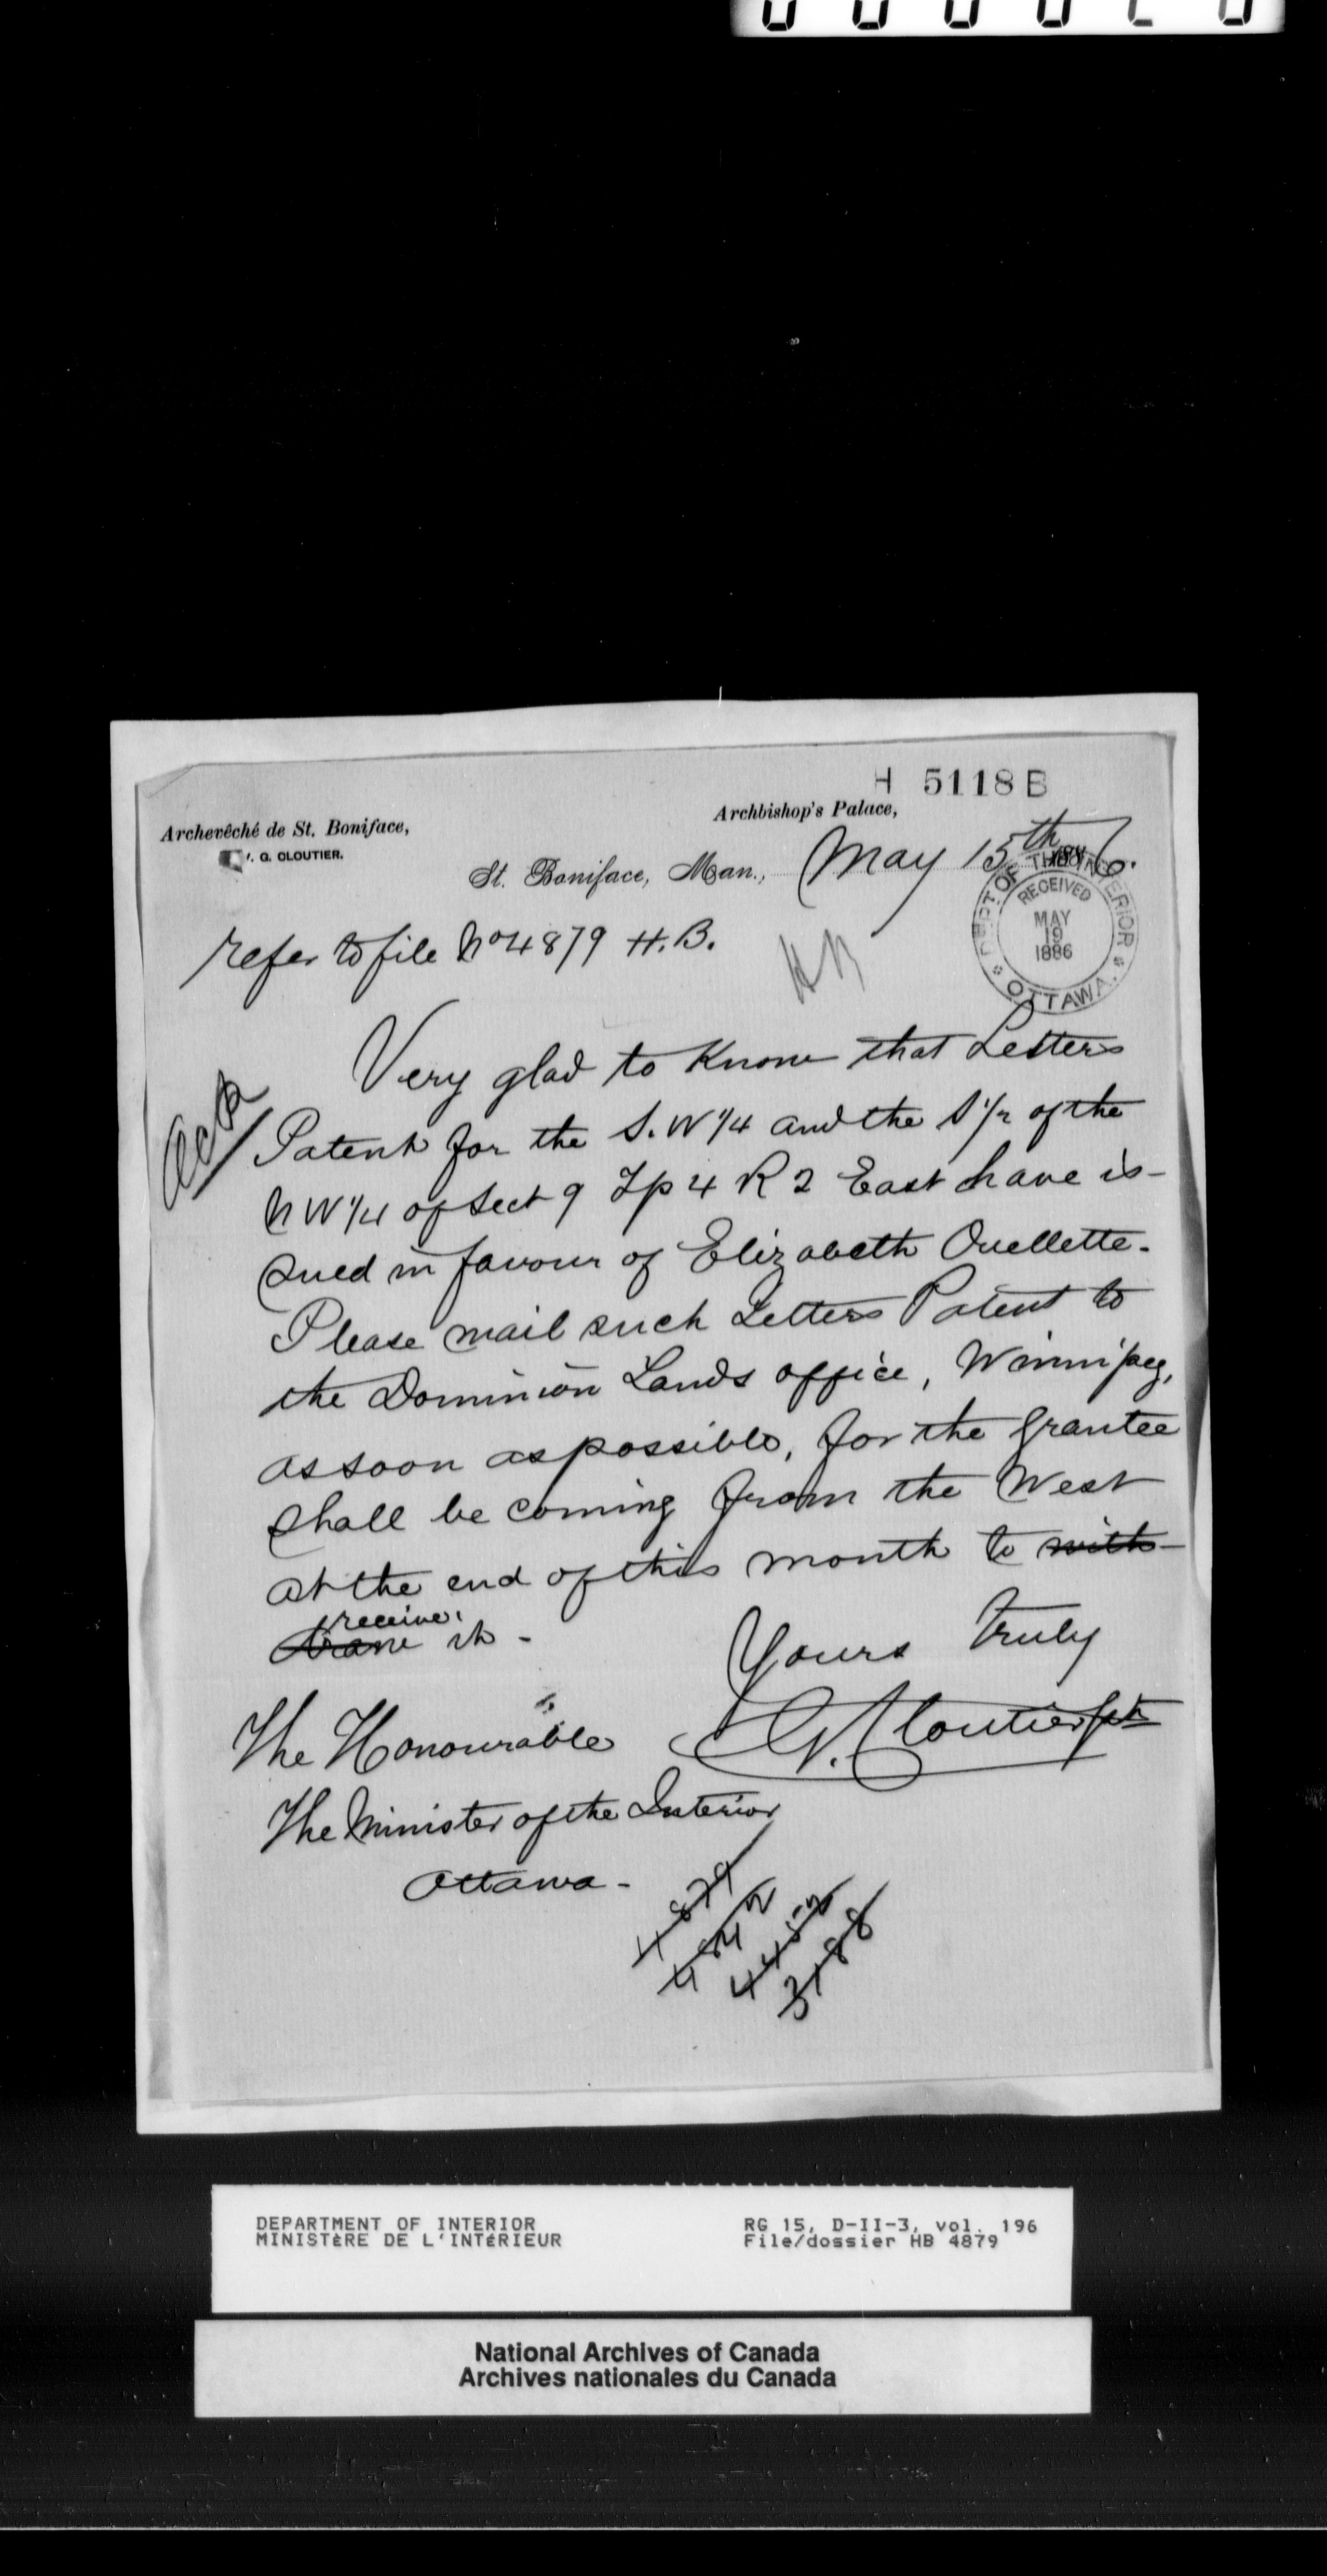 H 5118 B
Archevêché de St. Boniface,
Archbishop's Palace,
G. CLOUTIER.
St. Boniface, Man., May 15th 1886.
DEPT. OF THE INTERIOR
RECEIVED
MAY
19
1886
OTTAWA.
refer to file No 4879 H.B.
HB
Very glad to know that Letters
Patent for the S.W 1/4 and the S 1/2 of the
N W 1/4 of Sect 9 Tp 4 R 2 East have is-
sued in favour of Elizabeth Ouellette.
Please mail such Letters Patent to
the Dominion Lands office, Winnipeg,
as soon as possible, for the grantee
shall be coming from the West
at the end of this month to with-
receive
drawe it -
Yours truly
G. Cloutier ptr
The Honourable
The Minister of the Interior
Ottawa -
4879
4842
4452
3188
DEPARTMENT OF INTERIOR
MINISTÈRE DE L'INTÉRIEUR
RG 15, D-II-3, vol. 196
File/dossier HB 4879
National Archives of Canada
Archives nationales du Canada